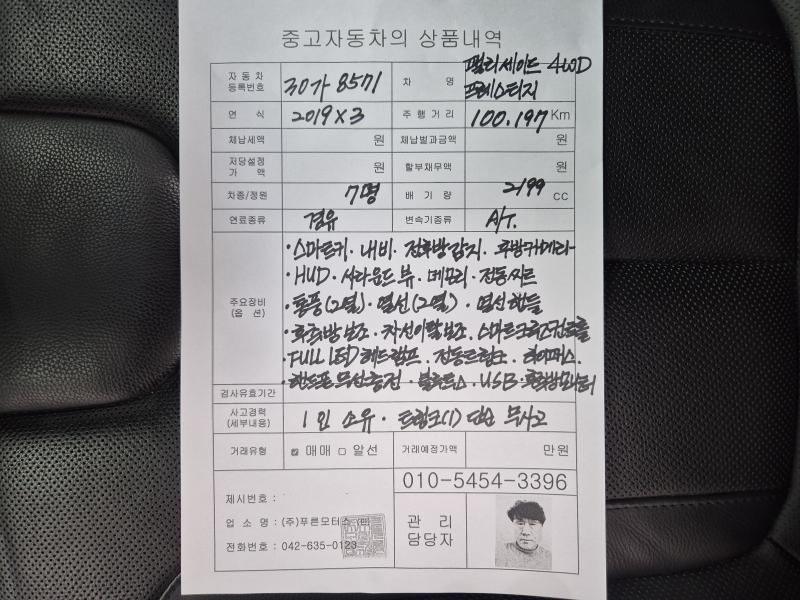 중고자동차의 상품내역
자동차등록번호 30가 8571 차명 펠리세이드 4WD 프레스티지
연식 2019 X 3 주행거리 100,197 Km
체납세액 원 체납벌과금액 원
저당설정가액 원 할부채무액 원
차종/정원 7명 배기량 2199 CC
연료종류 경유 변속기종류 A/T.
주요장비(옵션)
·스마트키·내비·전후방감지·후방카메라
·HUD·서라운드 뷰·메모리·전동씨트
·통풍(2열)·열선(2열)·열선핸들
·후측방보조·차선이탈보조·스마트크루즈컨트롤
·FULL LED헤드램프·전동트렁크·하이패스
·핸드폰무선충전·블루투스·USB·후측방모니터
검사유효기간
사고경력(세부내용) 1인 소유·트렁크(1) 단순 무사고
거래유형 매매 알선 거래예정가액 만원
010-5454-3396
제시번호 :
업소명 : (주)푸른모터스
전화번호 : 042-635-0123
관리담당자